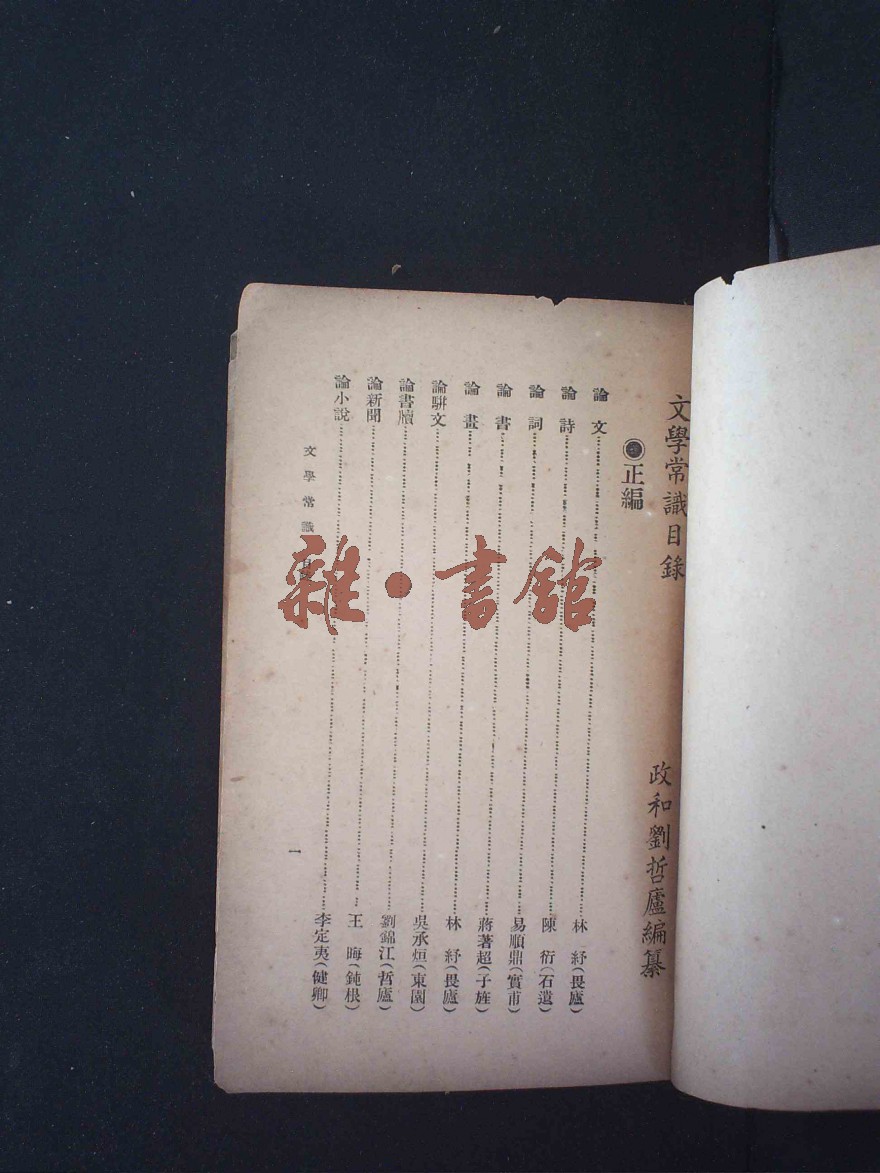 文學常識目錄
政和劉哲廬編纂
正編
論文 林紓(畏廬)
論詩 陳衍(石遺)
論詞 易順鼎(實甫)
論書 蔣著超(子旌)
論畫 林紓(畏廬)
論駢文 吳承烜(東園)
論書牘 劉錦江(哲廬)
論新聞 王晦(鈍根)
論小說 李定夷(健卿)
文學常識 目錄
一
雜·書館